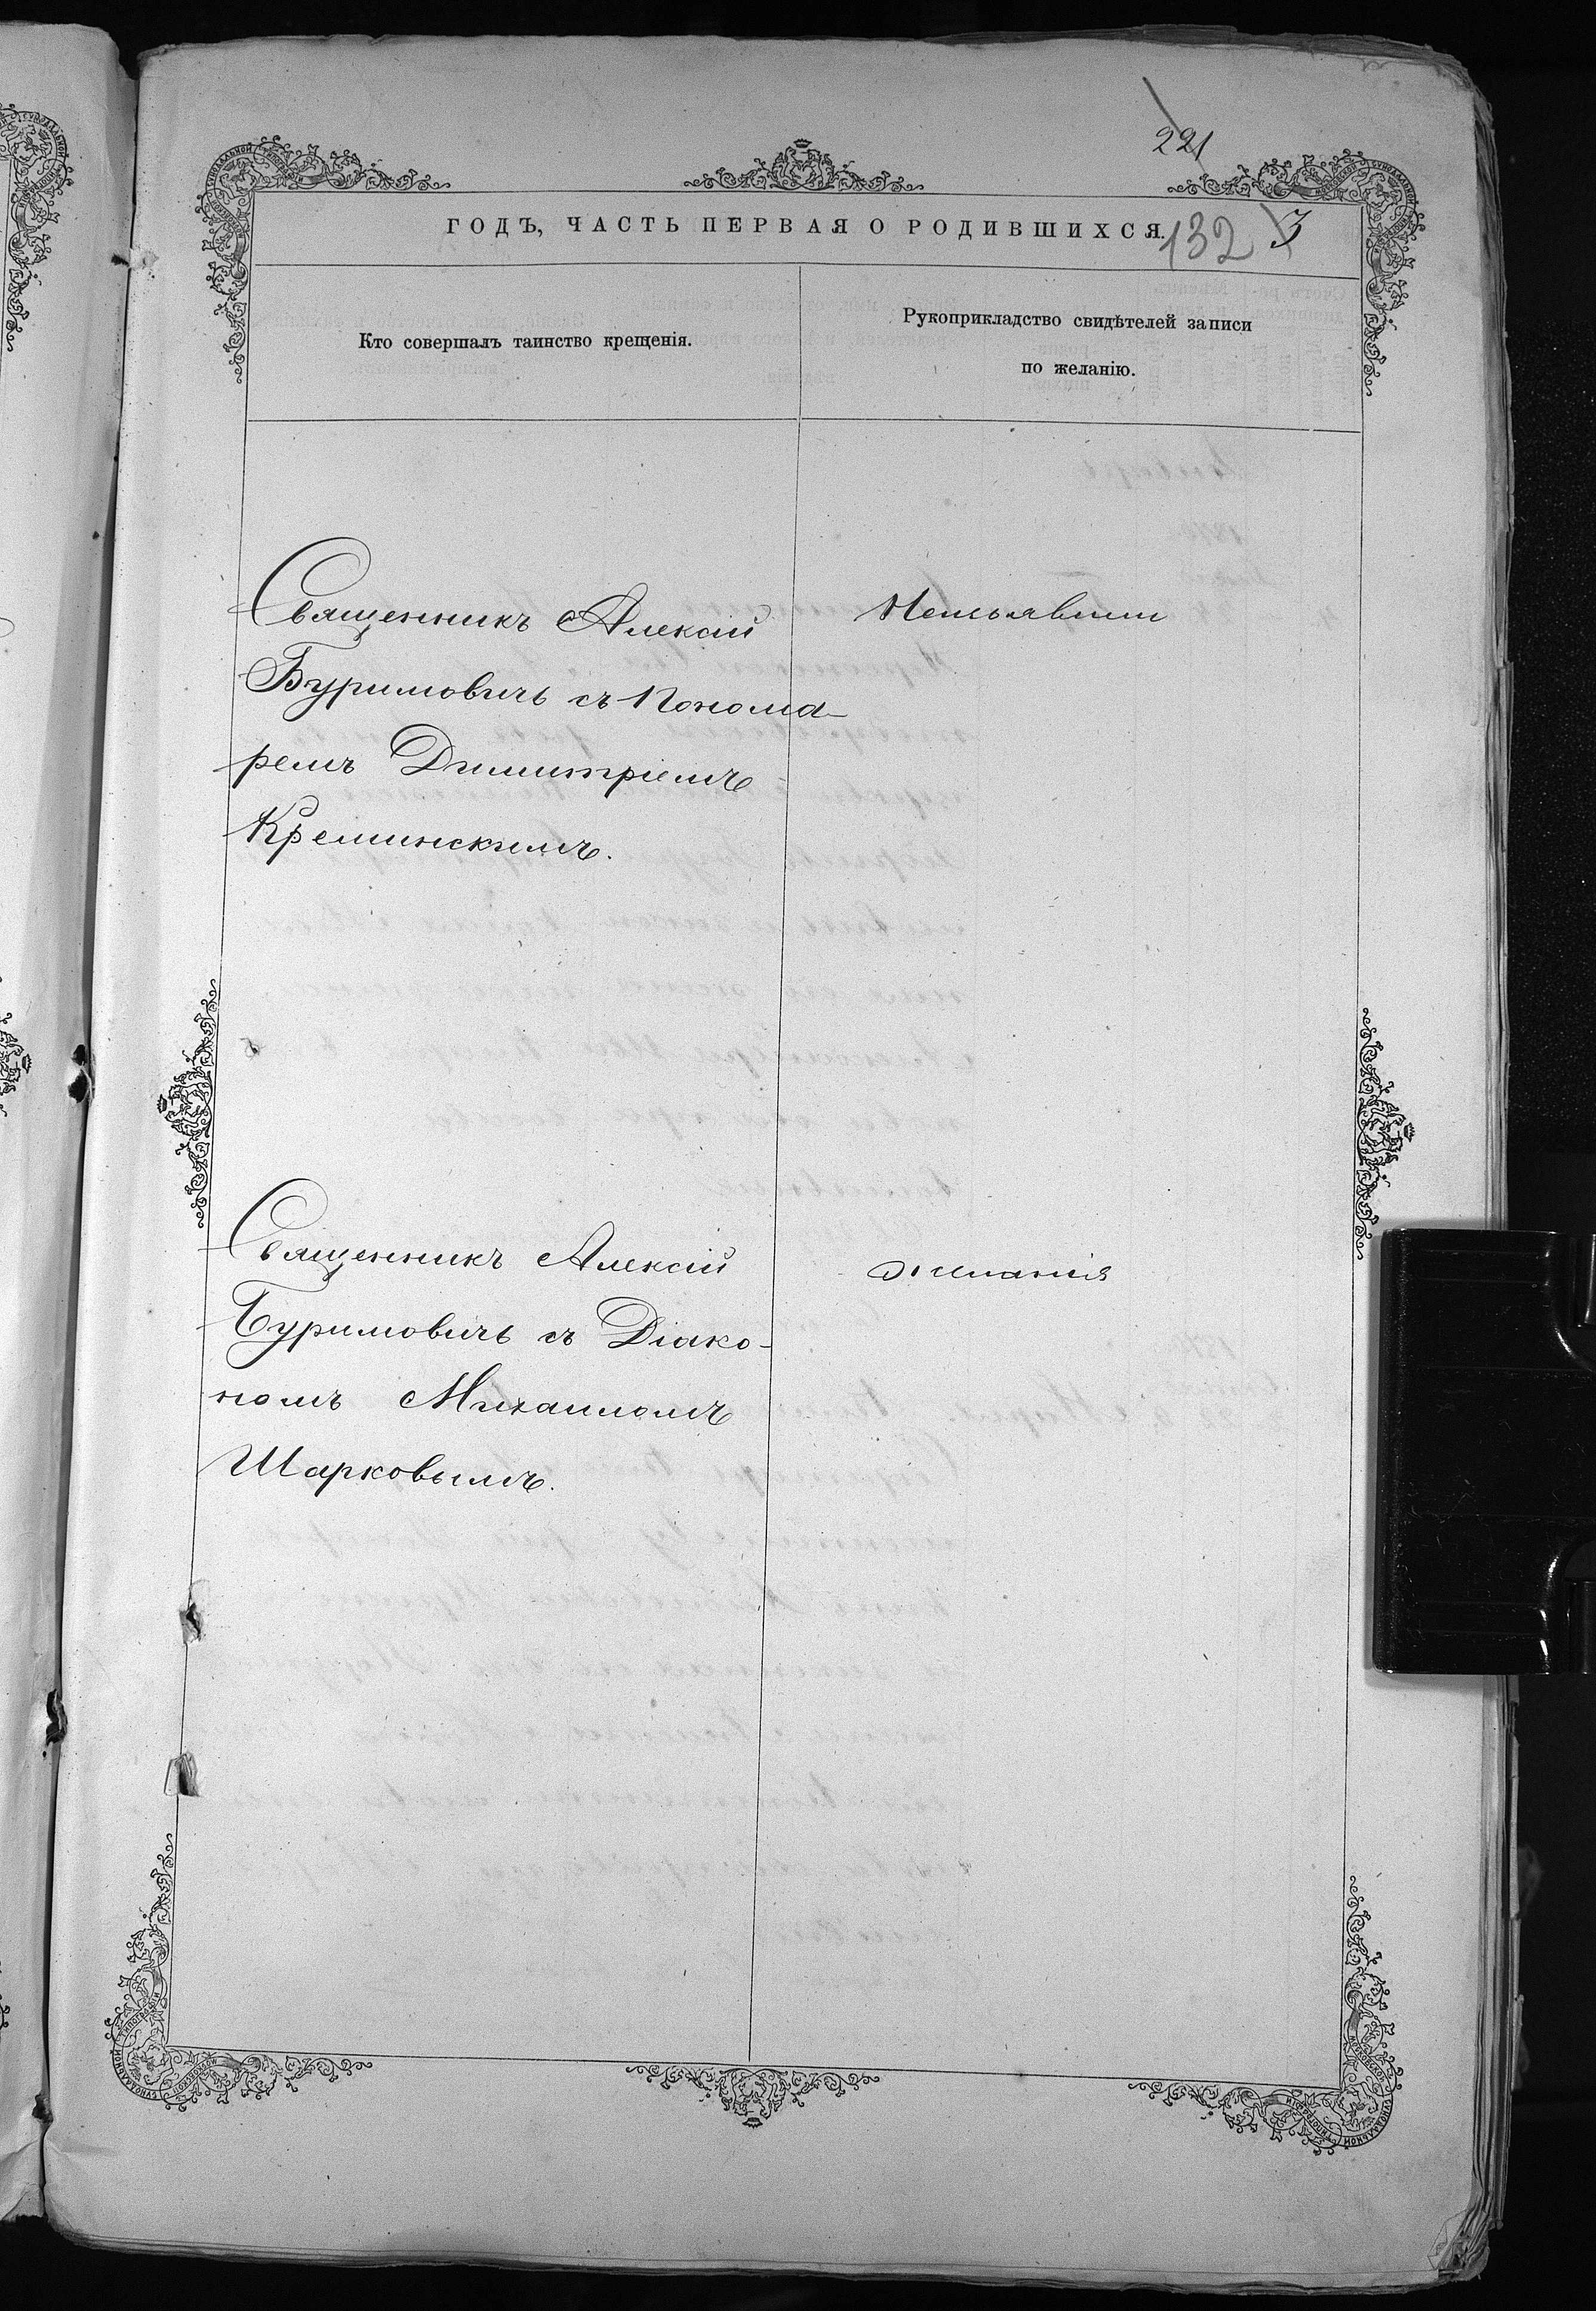 221
ГОДЪ, ЧАСТЬ ПЕРВАЯ О РОДИВШИХСЯ.
132 3
Кто совершалъ таинство крещенія.
Рукоприкладство свидѣтелей записи
по желанію.
Священникъ Алексій
Буримовичь съ Понома-
ремъ Димитріемъ
Креминскимъ.
Неизъявили
Священникъ Алексій
Буримовичь съ Діако-
номъ Михаиломъ
Шарковымъ.
желанія